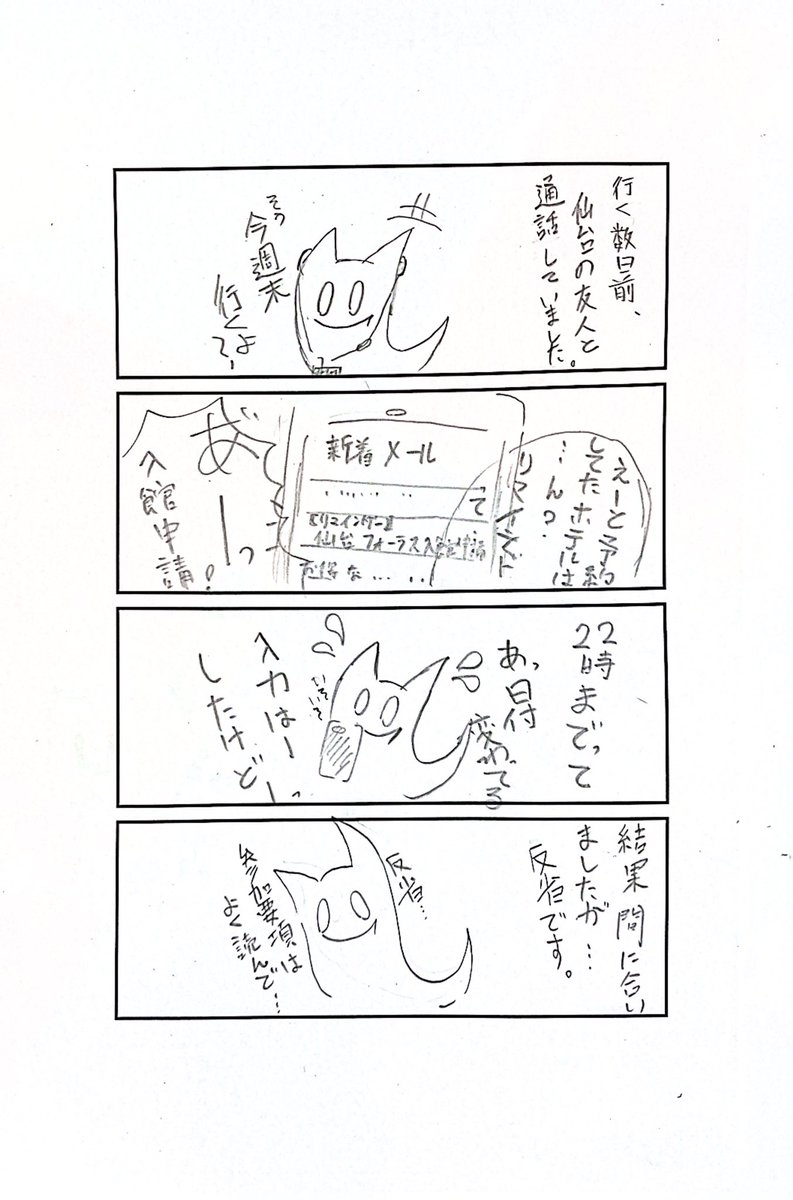 行く数日前、
仙台の友人と
通話していました。
そう
今週末
行くよ
えーと予約
してたホテルは
…ん?
新着メール
て
リマインド
【リマインダー】
仙台フォーラス入館申請
あ゛ーっ
入館申請!
22時までって
あっ日付
変わってる
いそいそ
入力はー
したけどーっ
結果間に合い
ましたが…
反省です。
反省…
参加要項は
よく読んで…